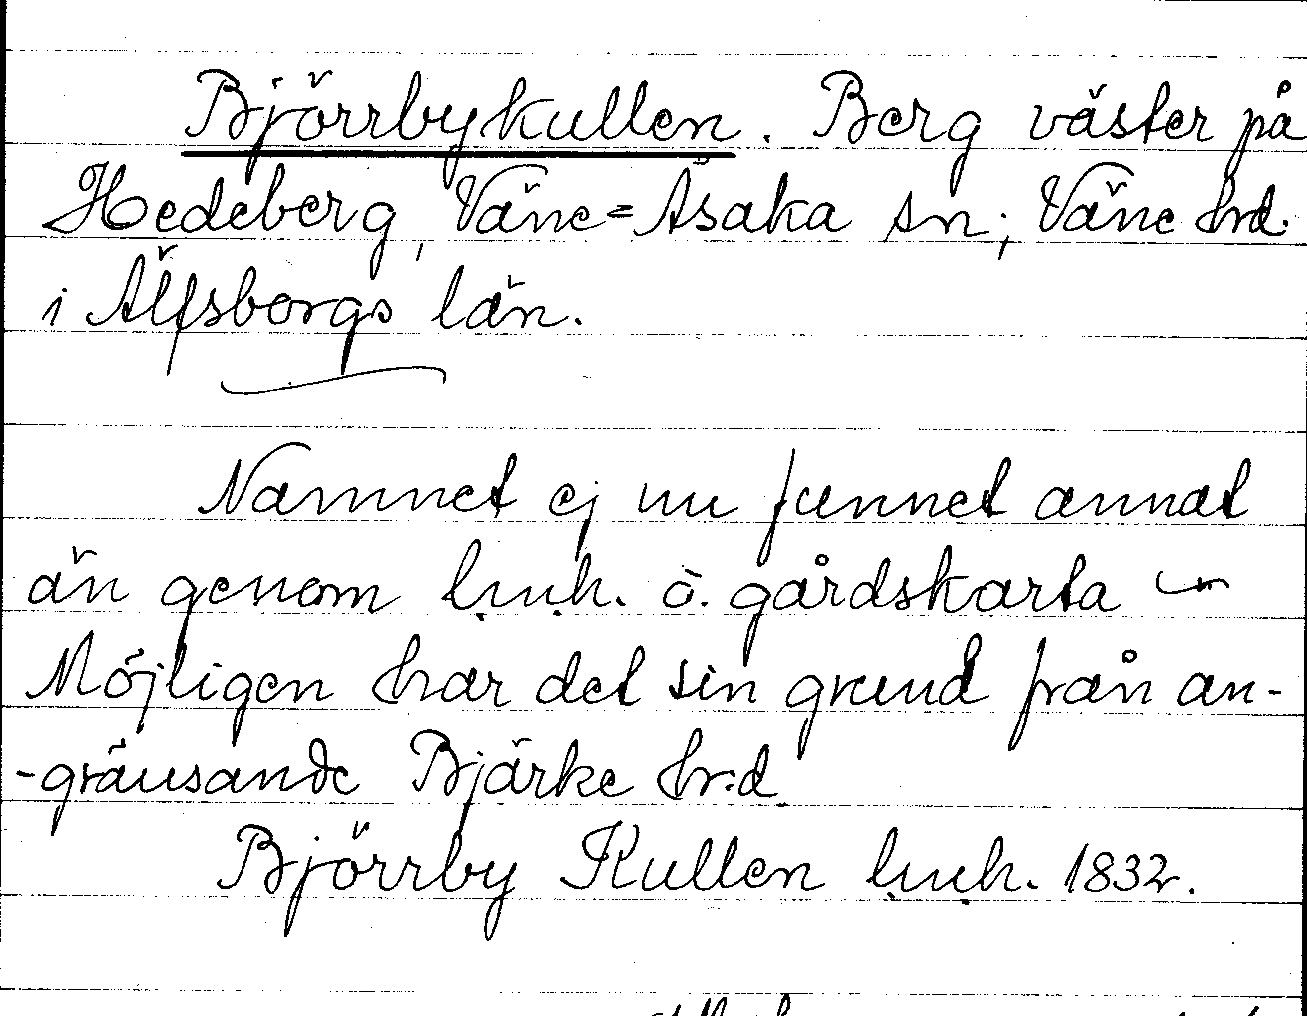 Björrbykullen. Berg väster på
Hedeberg, Väne=Åsaka sn; Väne hrd.
i Älfsborgs län.
Namnet ej nu funnet annat
än genom lmh. ö. gårdskarta
Möjligen har det sin grund från an-
-gränsande Bjärke hrd
Björrby Kullen lmh. 1832.